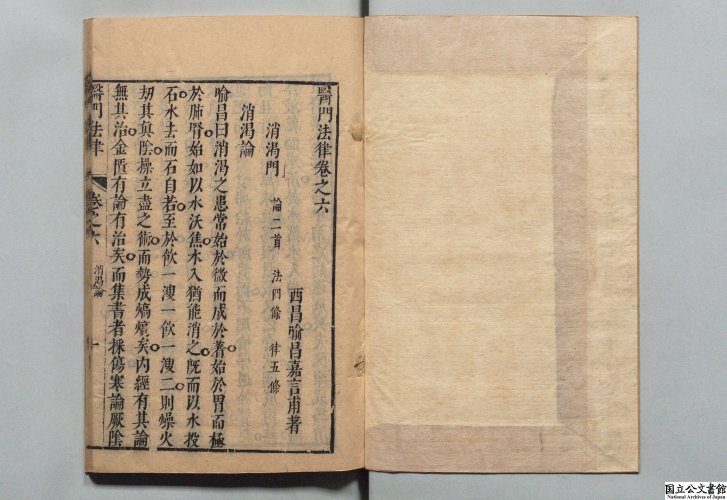 醫門法律卷之六
西昌喻昌嘉言甫著
消渴門 論二首 法四條 律五條
消渴論
喻昌曰消渴之患常始於微而成於著始於胃而極
於肺腎始如以水沃焦水入猶能消之旣而以水投
石水去而石自若至於飲一溲一飲一溲二則燥火
刼其眞陰操立盡之術而勢成熇熇矣內經有其論
無其治金匱有論有治矣而集書者採傷寒論厥陰
醫門法律 卷之六 消渴論 一
国立公文書館
National Archives of Japan